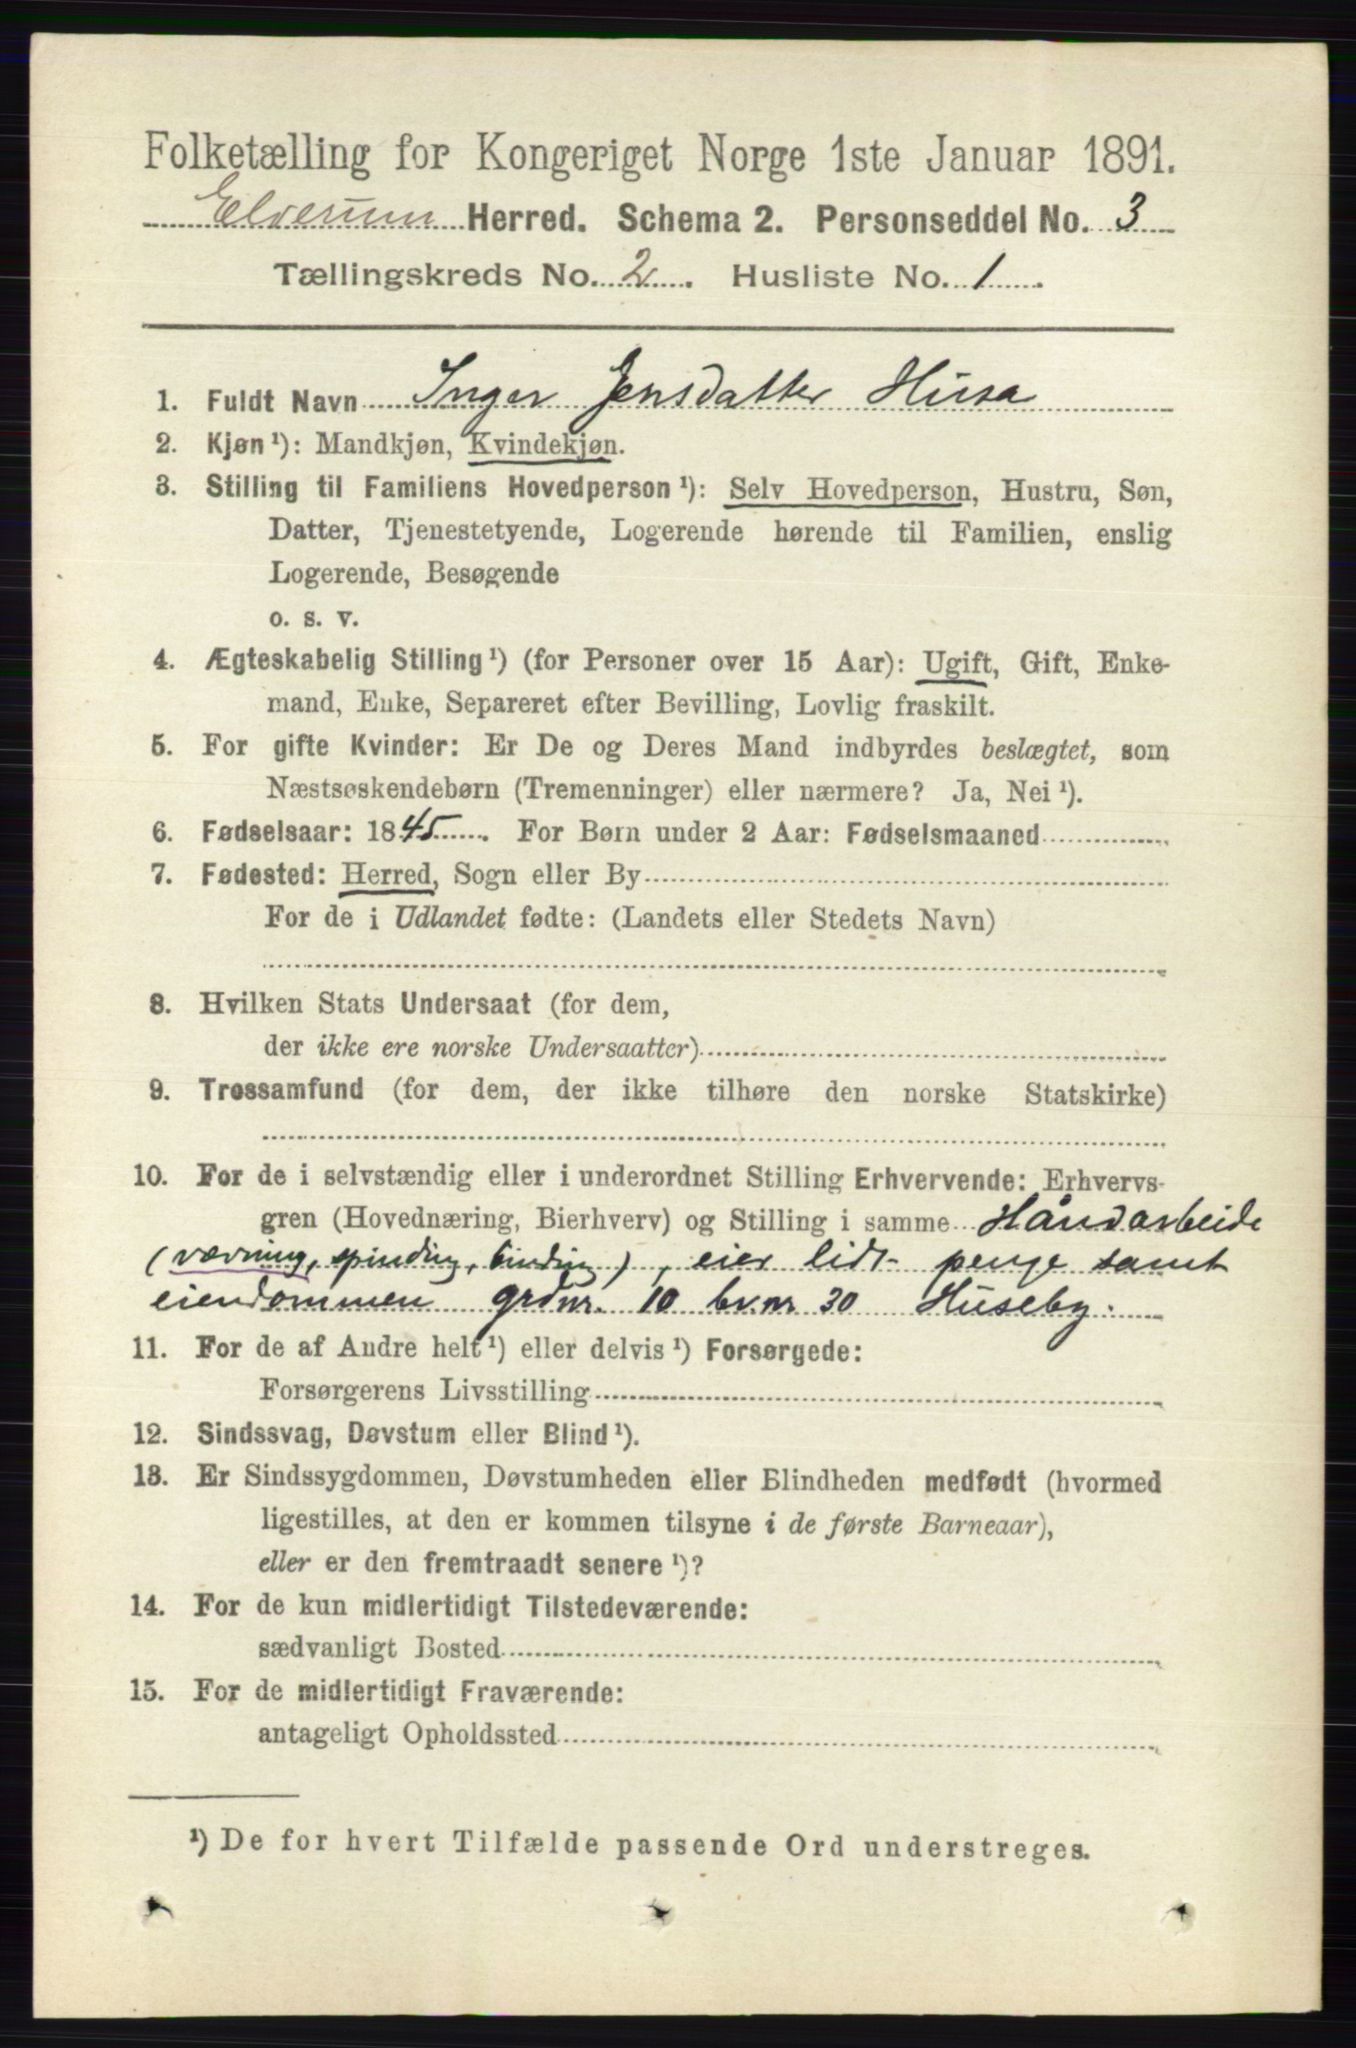 Folketælling for Kongeriget Norge 1ste Januar 1891.
Elverum Herred. Schema 2. Personseddel No. 3
Tællingskreds No. 2. Husliste No. 1.
1. Fuldt Navn Inger Jensdatter Husa
2. Kjøn¹): Mandkjøn, Kvindekjøn.
3. Stilling til Familiens Hovedperson¹): Selv Hovedperson, Hustru, Søn,
Datter, Tjenestetyende, Logerende hørende til Familien, enslig
Logerende, Besøgende
o. s. v.
4. Ægteskabelig Stilling¹) (for Personer over 15 Aar): Ugift, Gift, Enke-
mand, Enke, Separeret efter Bevilling, Lovlig fraskilt.
5. For gifte Kvinder: Er De og Deres Mand indbyrdes beslægtet, som
Næstsøskendebørn (Tremenninger) eller nærmere? Ja, Nei¹).
6. Fødselsaar: 1845. For Børn under 2 Aar: Fødselsmaaned
7. Fødested: Herred, Sogn eller By
For de i Udlandet fødte: (Landets eller Stedets Navn)
8. Hvilken Stats Undersaat (for dem,
der ikke ere norske Undersaatter)
9. Trossamfund (for dem, der ikke tilhøre den norske Statskirke)
10. For de i selvstændig eller i underordnet Stilling Erhvervende: Erhvervs-
gren (Hovednæring, Bierhverv) og Stilling i samme Håndarbeide
(vævning, spinding, binding), eier lidt penge samt
eiendommen grdnr. 10 br.nr 30 Huseby.
11. For de af Andre helt¹) eller delvis¹) Forsørgede:
Forsørgerens Livsstilling
12. Sindssvag, Døvstum eller Blind¹).
13. Er Sindssygdommen, Døvstumheden eller Blindheden medfødt (hvormed
ligestilles, at den er kommen tilsyne i de første Barneaar),
eller er den fremtraadt senere¹)?
14. For de kun midlertidigt Tilstedeværende:
sædvanligt Bosted
15. For de midlertidigt Fraværende:
antageligt Opholdssted
¹) De for hvert Tilfælde passende Ord understreges.